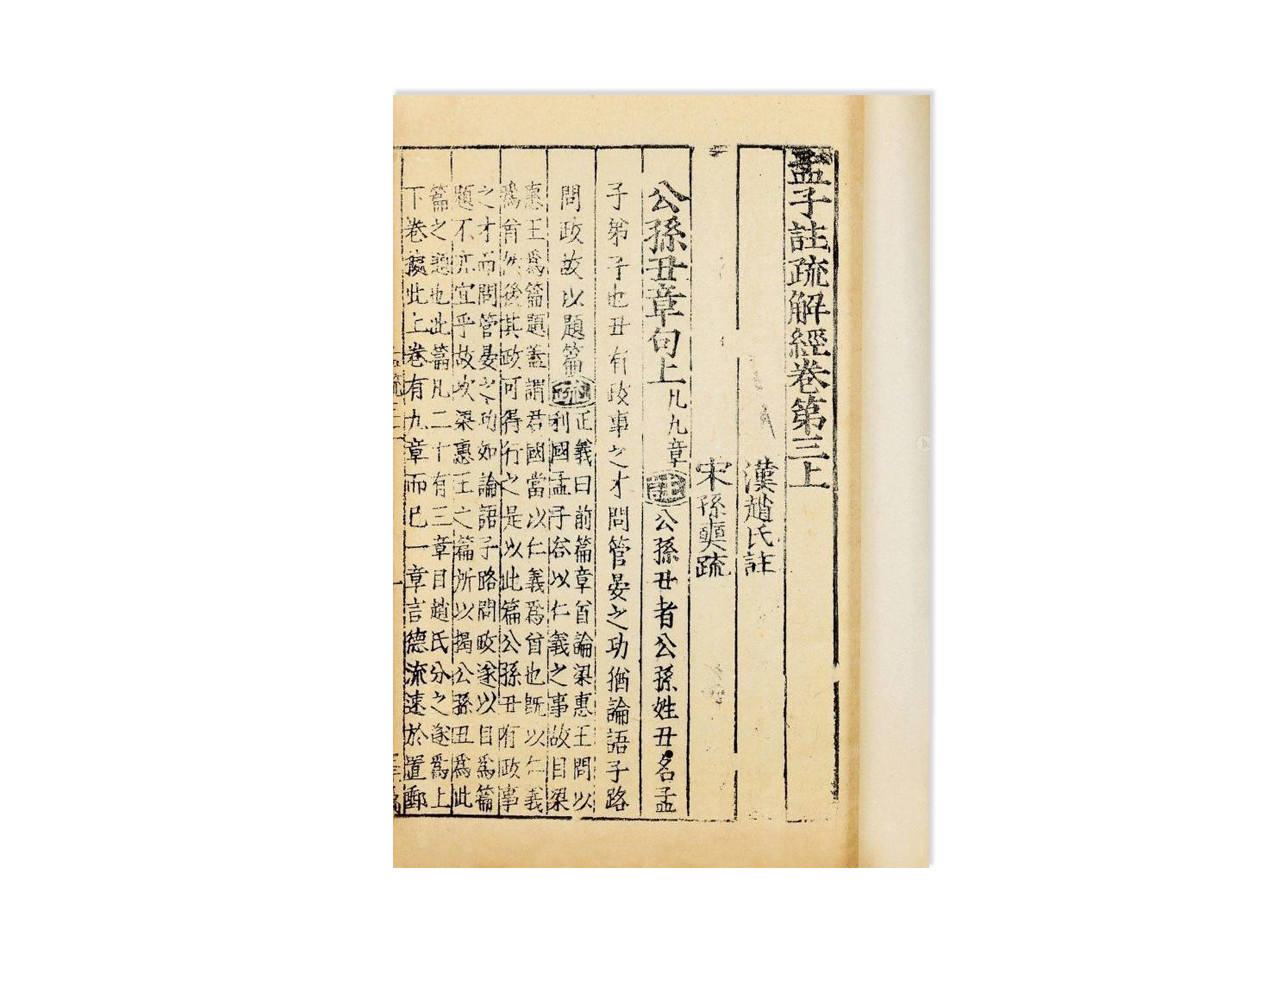 孟子註疏解經卷第三上
漢趙氏註
宋孫奭疏
公孫丑章句上凡九章註公孫丑者公孫姓丑名孟
子弟子也丑有政事之才問管晏之功猶論語子路
問政故以題篇疏正義曰前篇章首論梁惠王問以
利國孟子答以仁義之事故目梁
惠王爲篇題蓋謂君國當以仁義爲首也旣以仁義
爲首然後其政可得行之是以此篇公孫丑有政事
之才而問管晏之功如論語子路問政遂以目爲篇
題不亦宜乎故次梁惠王之篇所以揭公孫丑爲此
篇之題也此篇凡二十有三章目趙氏分之遂爲上
下卷據此上卷有九章而已一章言德流速於置郵